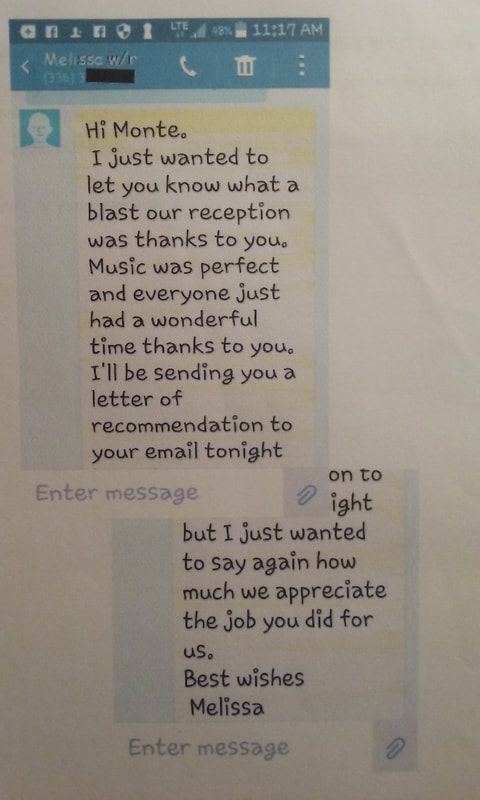 LTE 48% 11:17 AM
Melissa w/r
(336) 3
Hi Monte.
I just wanted to
let you know what a
blast our reception
was thanks to you.
Music was perfect
and everyone just
had a wonderful
time thanks to you.
I'll be sending you a
letter of
recommendation to
your email tonight
Enter message
on to
ight
but I just wanted
to say again how
much we appreciate
the job you did for
us.
Best wishes
Melissa
Enter message